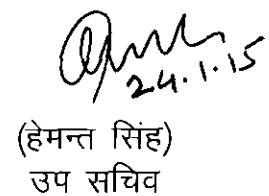 24.1.15
(हेमन्त सिंह)
उप सचिव